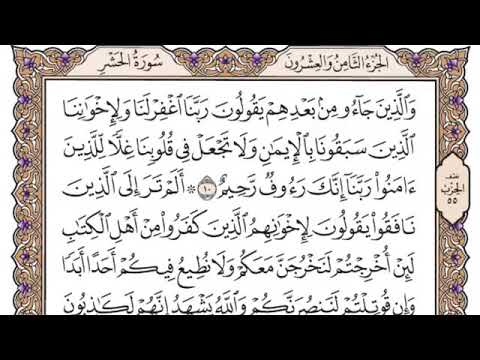 الجزء الثامن والعشرون
سورة الحشر
وَالَّذِينَ جَاءُو مِنۢ بَعْدِهِمْ يَقُولُونَ رَبَّنَا اغْفِرْ لَنَا وَلِإِخْوَانِنَا
الَّذِينَ سَبَقُونَا بِالْإِيمَٰنِ وَلَا تَجْعَلْ فِي قُلُوبِنَا غِلًّا لِّلَّذِينَ
ءَامَنُوا رَبَّنَا إِنَّكَ رَءُوفٌ رَّحِيمٌ ١٠ ۞ أَلَمْ تَرَ إِلَى الَّذِينَ
نَافَقُوا يَقُولُونَ لِإِخْوَٰنِهِمُ الَّذِينَ كَفَرُوا مِنْ أَهْلِ الْكِتَٰبِ
لَئِنْ أُخْرِجْتُمْ لَنَخْرُجَنَّ مَعَكُمْ وَلَا نُطِيعُ فِيكُمْ أَحَدًا أَبَدًا
وَإِن قُوتِلْتُمْ لَنَنصُرَنَّكُمْ وَاللَّهُ يَشْهَدُ إِنَّهُمْ لَكَٰذِبُونَ
نصف
الحزب
٥٥